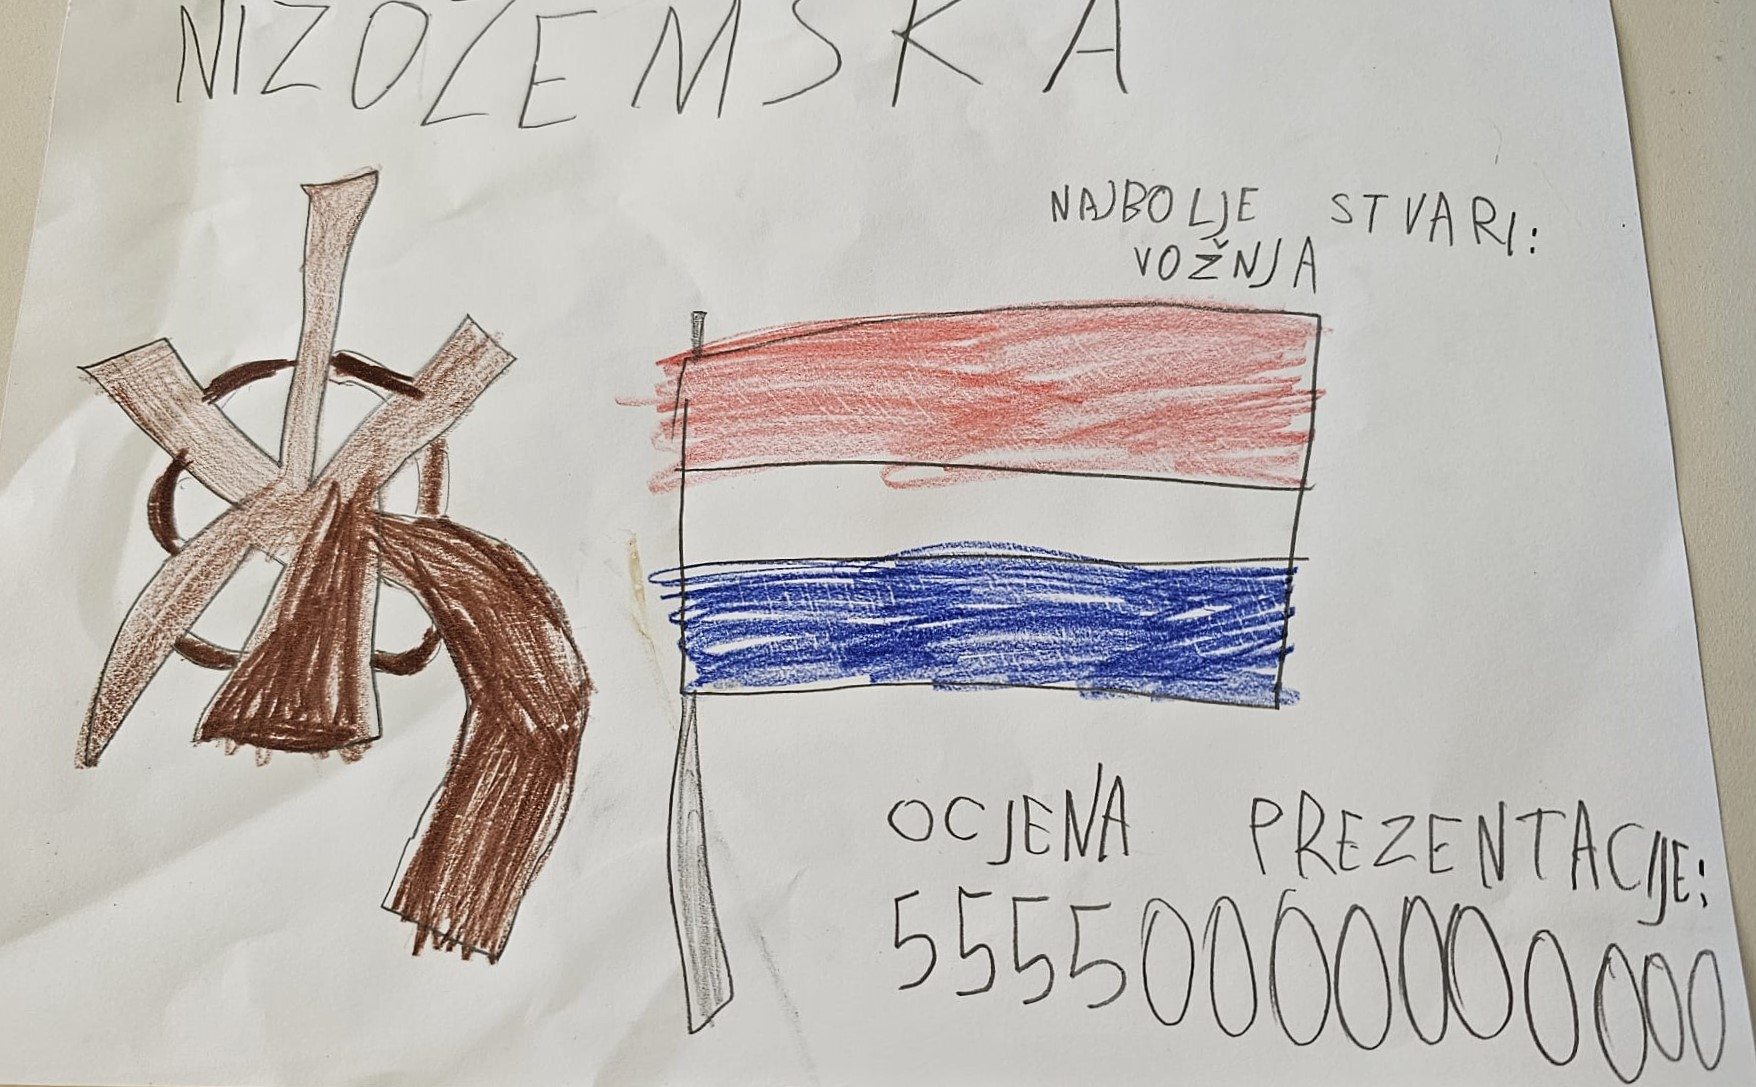 NIZOZEMSKA
NAJBOLJE STVARI:
VOŽNJA
OCJENA PREZENTACIJE:
55550000000000